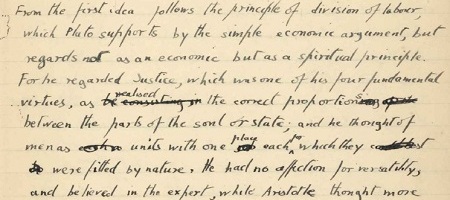 From the first idea follows the principle of division of labour,
which Plato supports by the simple economic argument, but
regards not as an economic but as a spiritual principle.
For he regarded Justice, which was one of his four fundamental
virtues, as realised in the correct proportions
between the parts of the soul or state; and he thought of
men as units with one place each for which they
were fitted by nature. He had no affection for versatility,
and believed in the expert, while Aristotle thought more